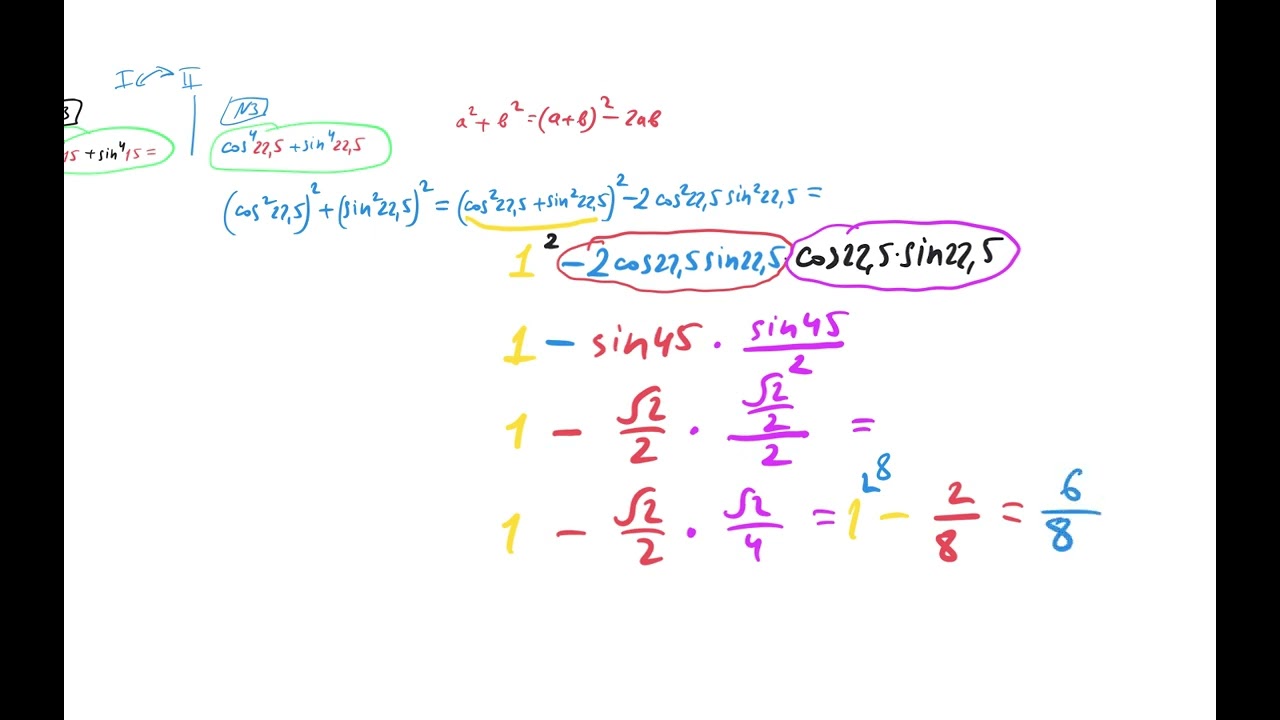 I II
3 N3
a² + b² = (a+b)² − 2ab
15 + sin⁴15 = cos⁴22,5 + sin⁴22,5
(cos²22,5)² + (sin²22,5)² = (cos²22,5 + sin²22,5)² − 2 cos²22,5 sin²22,5 =
1² − 2cos22,5 sin22,5 · cos22,5 · sin22,5
1 − sin45 · sin45/2
1 − √2/2 · (√2/2)/2 =
1 − √2/2 · √2/4 = 1 ⁸ − 2/8 = 6/8